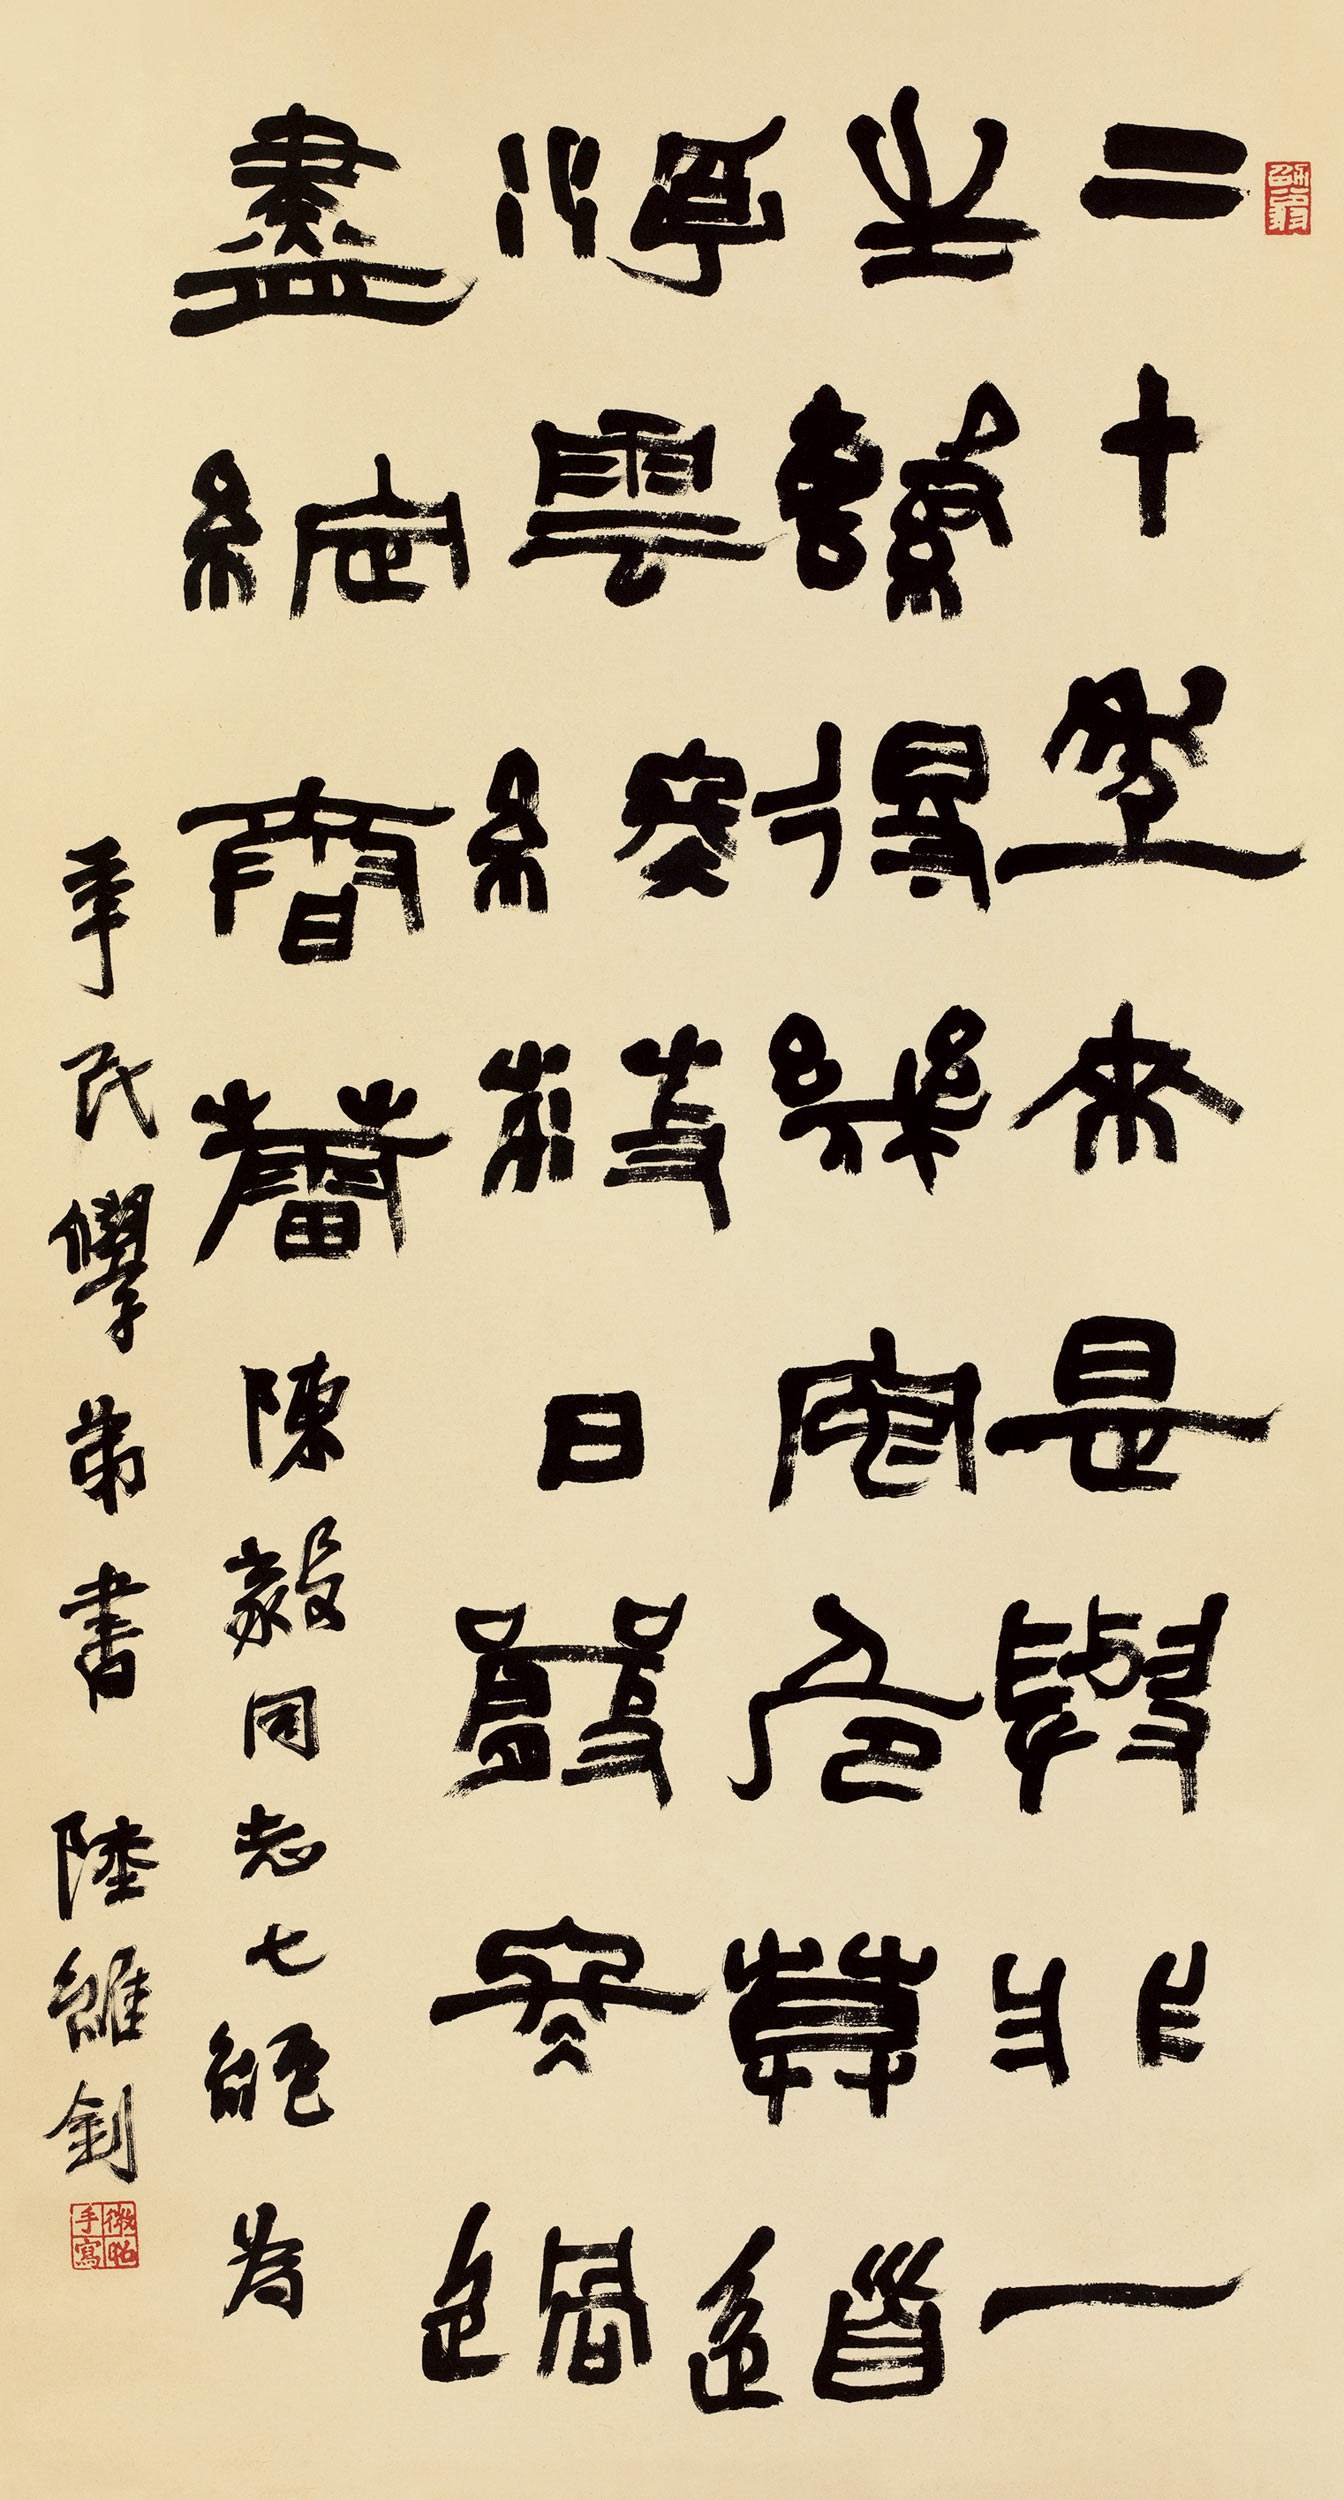 二十年來是與非一
生繫得幾安危莫道
浮雲終蔽日嚴冬過
盡綻春蕾 陳毅同志七絕為
民學弟書 陸維釗
微昭手寫